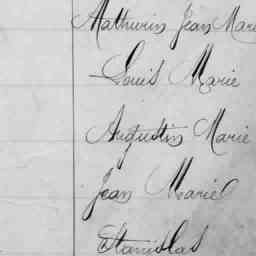 Mathurin Jean Marie
Louis Marie
Augustin Marie
Jean Marie
Stanislas